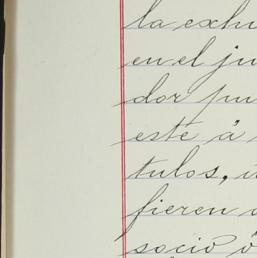 la exh
en el ju
dor pu
esté á
tulos,
fieren
socio ó